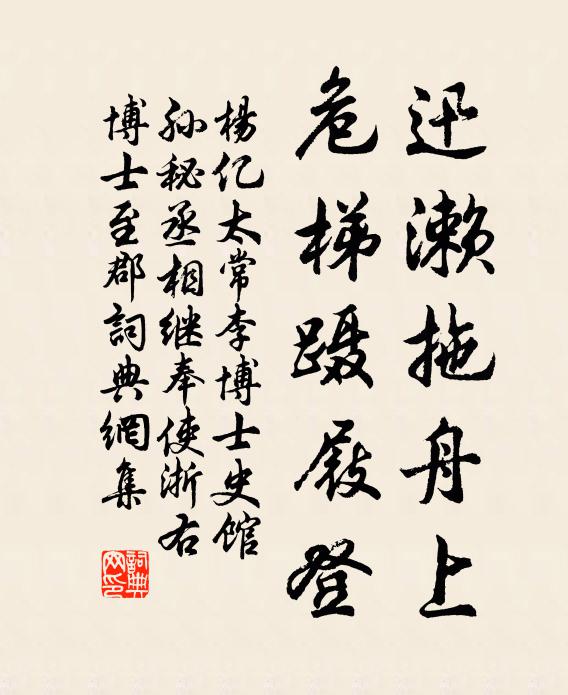 迅濑拖舟上
危梯蹑屐登
楊亿太常李博士史馆
孙秘丞相继奉使浙右
博士至郡詞典網集
詞典网印